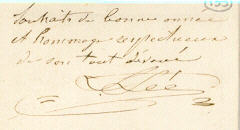 Souhaits de bonne année
et hommage respectueux
de son tout dévoué